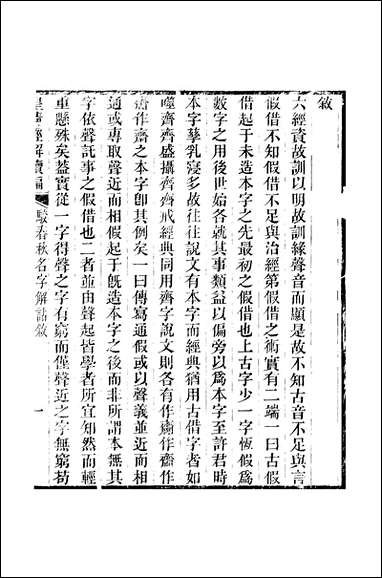 敘
六經資故訓以明故訓緣聲音而顯是故不知古音不足與言
假借不知假借不足與治經第假借之術實有二端一曰古假
借起于未造本字之先最初之假借也上古字少一字恆假爲
數字之用後世始各就其事類益以偏旁以爲本字至許君時
本字孳乳寖多故往往說文有本字而經典猶用古借字者如
噬齊齊盛攝齊齊戒經典同用齊字說文則各有作
作齋之本字卽其例矣一曰傳寫通假或以聲義並近而相
通或專取聲近而相假起于旣造本字之後而非所謂本無其
字依聲託事之假借也二者並由聲起皆學者所宜知然而輕
重懸殊矣蓋實從一字得聲之字有窮而僅聲近之字無窮苟
皇淸經解續編
駮春秋名字解詁敘
一